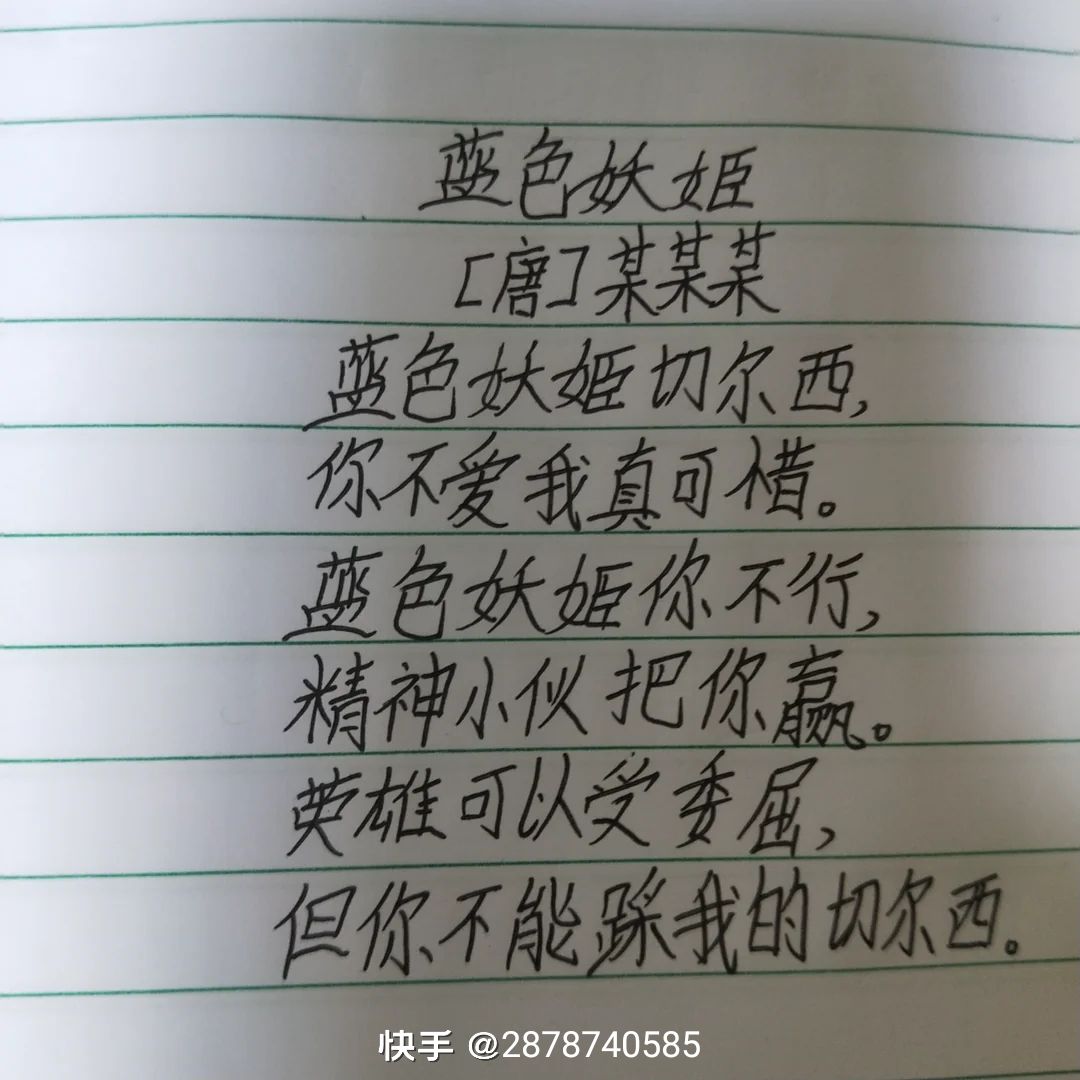 蓝色妖姬
[唐]某某某
蓝色妖姬切尔西,
你不爱我真可惜。
蓝色妖姬你不行,
精神小伙把你赢。
英雄可以受委屈,
但你不能踩我的切尔西。
快手 @2878740585